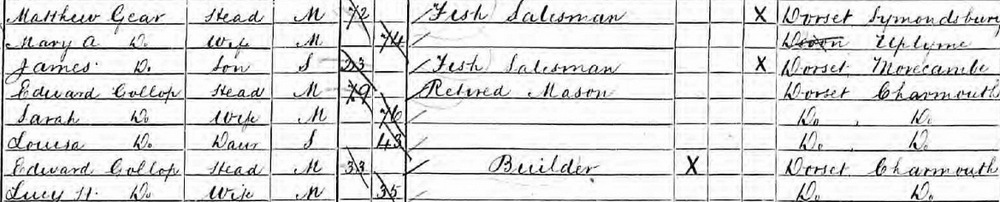 Matthew Gear Head M 72 Fish Salesman X Dorset Symondsbury
Mary A Do. Wife M 74 Devon Uplyme
James Do. Son S 23 Fish Salesman X Dorset Morecambe
Edward Gollop Head M 79 Retired Mason Dorset Charmouth
Sarah Do. Wife M 76 Do. Do.
Louisa Do. Daur S 43 Do. Do.
Edward Gollop Head M 33 Builder X Dorset Charmouth
Lucy H. Do. Wife M 35 Do. Do.